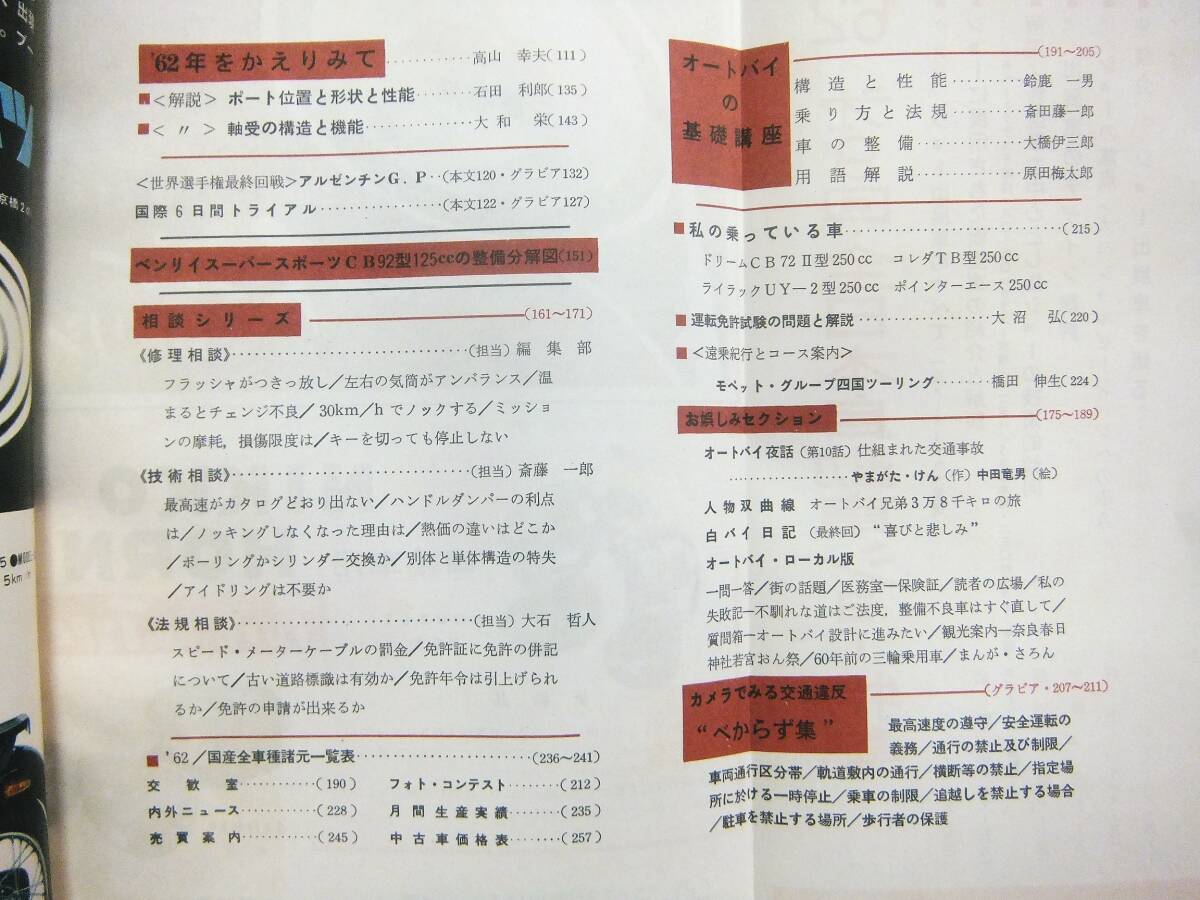 '62年をかえりみて…………高山 幸夫(111)
■<解説> ポート位置と形状と性能………石田 利郎(135)
■< 〃 > 軸受の構造と機能……………大和 栄(143)
<世界選手権最終回戦>アルゼンチンG.P…(本文120・グラビア132)
国際6日間トライアル………………(本文122・グラビア127)
ベンリイスーパースポーツCB92型125ccの整備分解図(151)
相談シリーズ (161〜171)
《修理相談》……………………………(担当) 編集部
フラッシャがつきっ放し/左右の気筒がアンバランス/温
まるとチェンジ不良/30km/hでノックする/ミッショ
ンの摩耗,損傷限度は/キーを切っても停止しない
《技術相談》……………………………(担当) 斎藤 一郎
最高速がカタログどおり出ない/ハンドルダンパーの利点
は/ノッキングしなくなった理由は/熱価の違いはどこか
/ボーリングかシリンダー交換か/別体と単体構造の特失
/アイドリングは不要か
《法規相談》……………………………(担当) 大石 哲人
スピード・メーターケーブルの罰金/免許証に免許の併記
について/古い道路標識は有効か/免許年令は引上げられ
るか/免許の申請が出来るか
■ '62/国産全車種諸元一覧表……………………(236〜241)
交歓室…………(190) フォト・コンテスト………(212)
内外ニュース………(228) 月間生産実績………(235)
売買案内…………(245) 中古車価格表………(257)
オートバイ
の
基礎講座
(191〜205)
構造と性能…………鈴鹿 一男
乗り方と法規…………斎田藤一郎
車の整備……………大橋伊三郎
用語解説……………原田梅太郎
■ 私の乗っている車……………………………(215)
ドリームCB72 II型250cc コレダTB型250cc
ライラックUY—2型250cc ポインターエース250cc
■ 運転免許試験の問題と解説………………大沼 弘(220)
■ <遠乗紀行とコース案内>
モペット・グループ四国ツーリング………橋田 伸生(224)
お娯しみセクション (175〜189)
オートバイ夜話 (第10話) 仕組まれた交通事故
…………………やまがた・けん(作) 中田竜男(絵)
人物双曲線 オートバイ兄弟3万8千キロの旅
白バイ日記 (最終回) “喜びと悲しみ”
オートバイ・ローカル版
一問一答/街の話題/医務室—保険証/読者の広場/私の
失敗記—不馴れな道はご法度,整備不良車はすぐ直して/
質問箱—オートバイ設計に進みたい/観光案内—奈良春日
神社若宮おん祭/60年前の三輪乗用車/まんが・さろん
カメラでみる交通違反
“べからず集”
(グラビア・207〜211)
最高速度の遵守/安全運転の
義務/通行の禁止及び制限/
車両通行区分帯/軌道敷内の通行/横断等の禁止/指定場
所に於ける一時停止/乗車の制限/追越しを禁止する場合
/駐車を禁止する場所/歩行者の保護